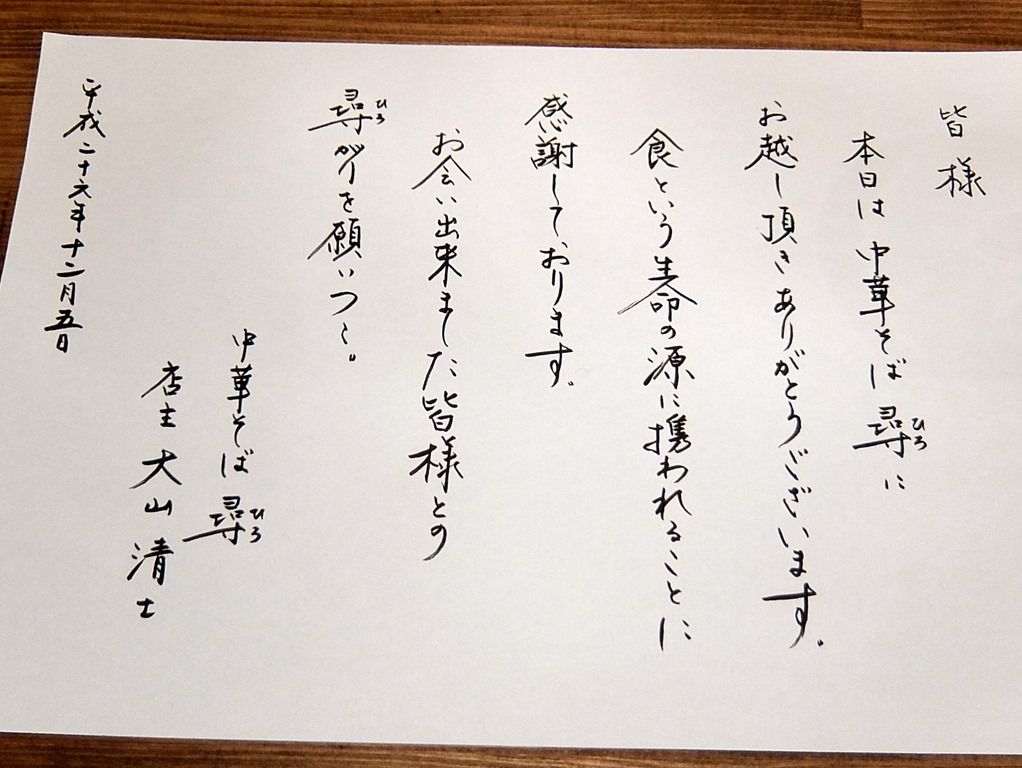 皆様
本日は中華そば尋ひろに
お越し頂きありがとうございます。
食という生命の源に携われることに
感謝しております。
お会い出来ました皆様との
尋ひろがりを願いつゝ。
中華そば尋ひろ
店主 大山清士
平成二十六年十二月五日